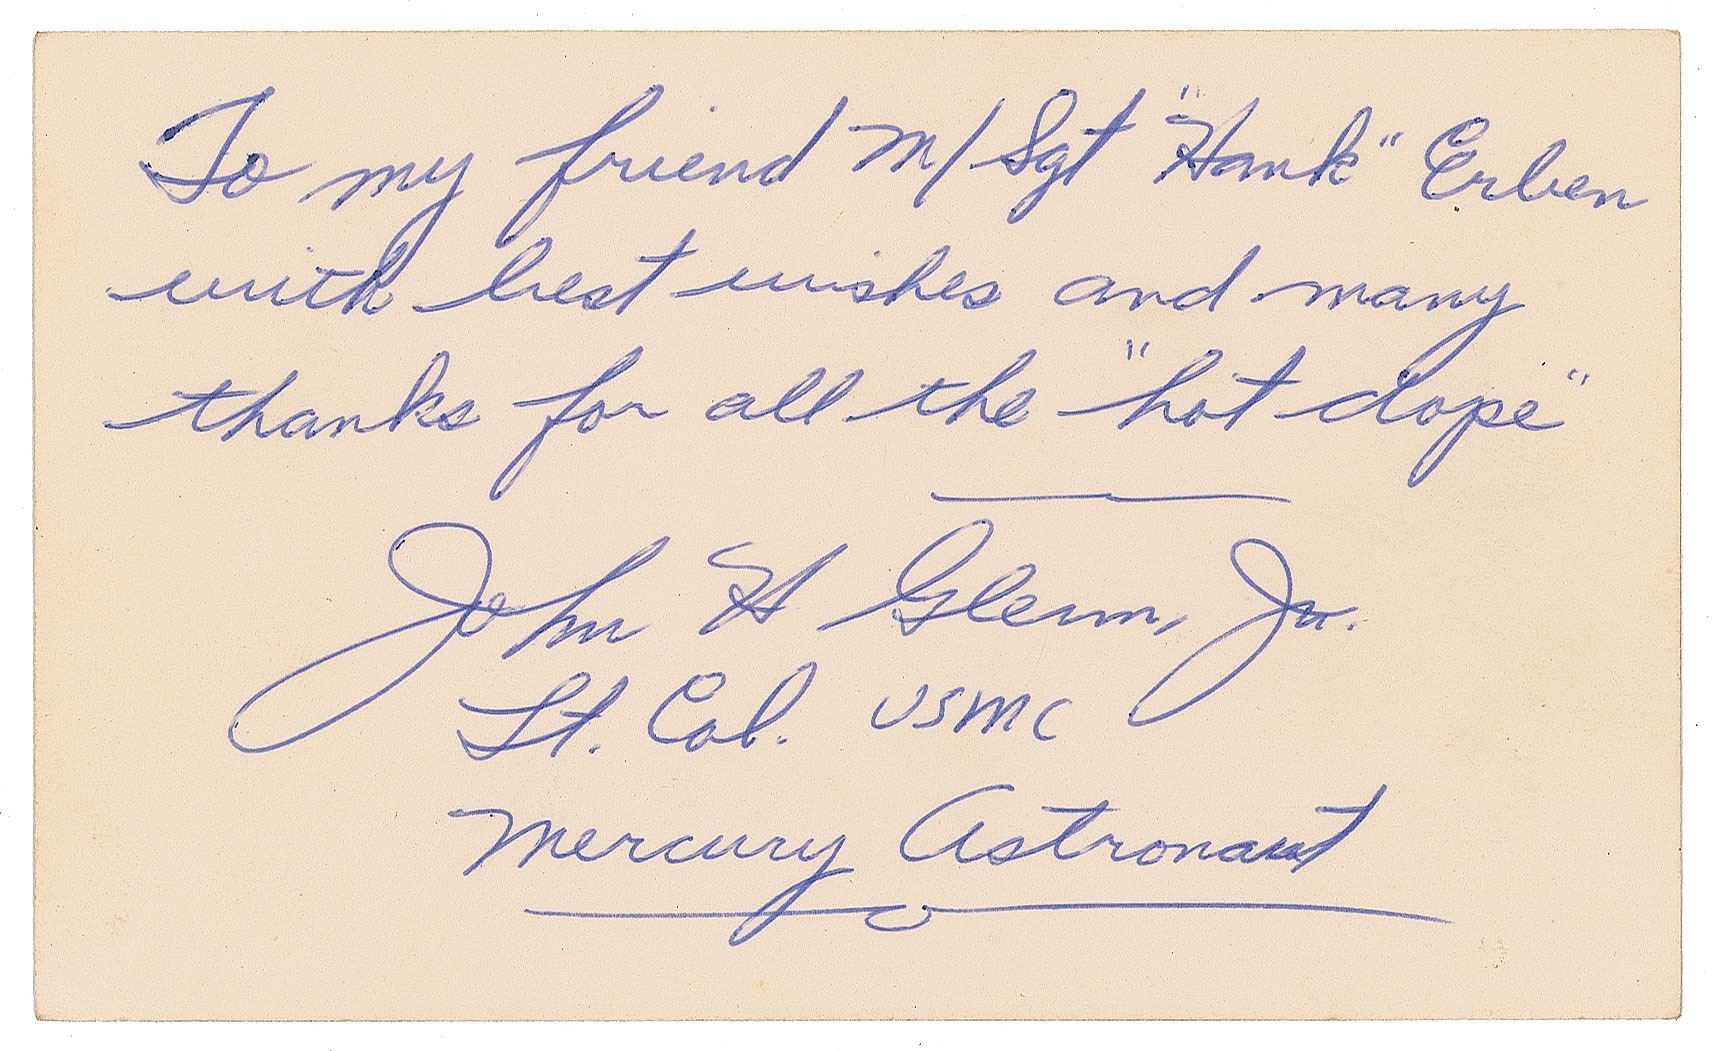 To my friend M/Sgt "Hank" Erben
with best wishes and many
thanks for all the "hot dope"
John H Glenn, Jr.
Lt. Col. USMC
Mercury Astronaut